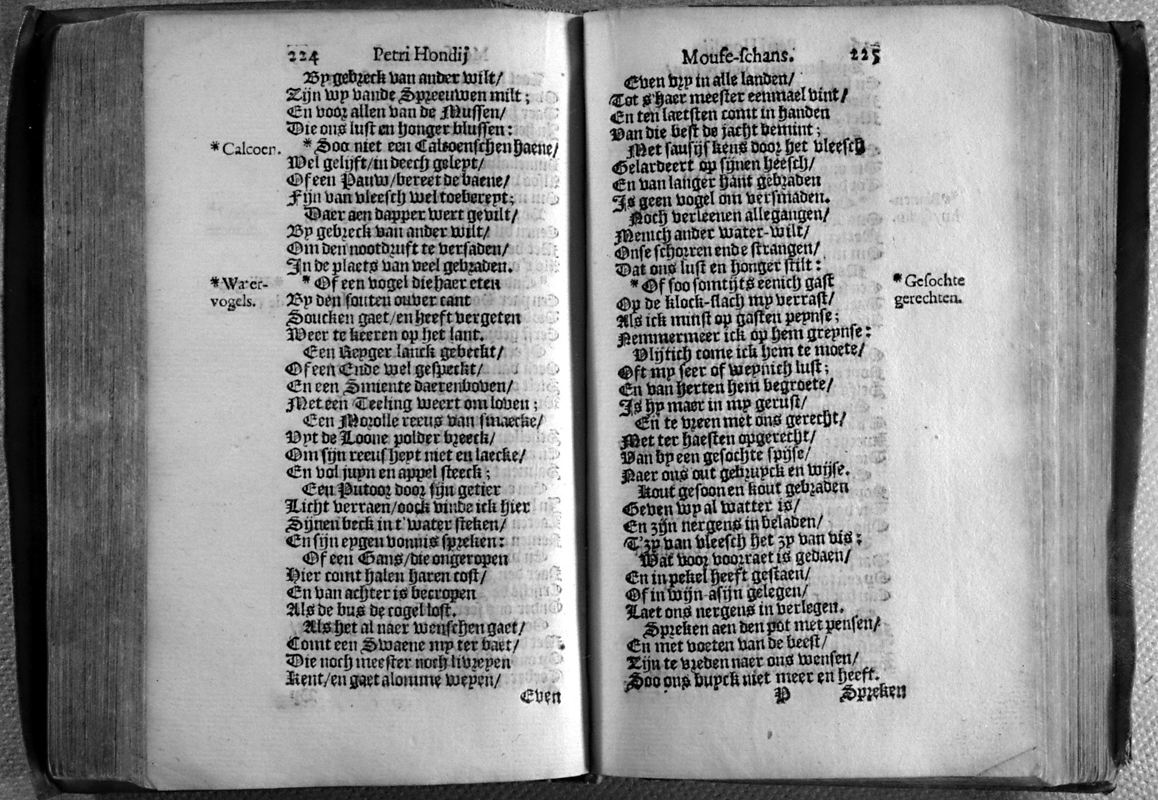 224 Petri Hondij
By gebreck van ander wilt/
Zijn wy vande Spreeuwen milt;
En voor allen van de Mussen/
Die ons lust en honger blussen:
*Calcoen. * Soo niet een Calcoenschen haene/
Wel gelijft/in deech geleyt/
Of een Pauw/bereet de baene/
Fijn van vleesch wel toebereyt;
Daer aen dapper wert gevilt/
By gebreck van ander wilt/
Om den nootdruft te versaden/
In de plaets van veel gebraden.
*Water- * Of een vogel die haer eten
vogels. By den souten ouver cant
Soucken gaet/en heeft vergeten
Weer te keeren op het lant.
Een Reyger lanck gebeckt/
Of een Ende wel gespeckt/
En een Smiente daerenboven/
Met een Teeling weert om loven;
Een Morolle reeus van smaecke/
Vyt de Loone polder breeck/
Om sijn reeusheyt niet en laecke/
En vol juyn en appel steeck;
Een Putoor door sijn getier
Licht verraen/oock vinde ick hier
Sijnen beck in t'water steken/
En sijn eygen vonnis spreken:
Of een Gans/die ongeropen
Hier comt halen haren cost/
En van achter is becropen
Als de bus de cogel lost.
Als het al naer wenschen gaet/
Comt een Swaene my ter baet/
Die noch meester noch livreyen
Kent/en gaet alomme weyen/
Even
Mouse-schans. 225
Even vry in alle landen/
Tot s'haer meester eenmael vint/
En ten laetsten comt in handen
Van die best de jacht bemint;
Met sausijskens door het vleesch
Gelardeert op sijnen heesch/
En van langer hant gebraden
Is geen vogel om versmaden.
Noch verleenen allegangen/
Menich ander water-wilt/
Onse schorren ende strangen/
Dat ons lust en honger stilt:
* Of soo somtijts eenich gast *Gesochte
Op de klock-slach my verrast/ gerechten.
Als ick minst op gasten peynse;
Nemmermeer ick op hem greynse:
Vlijtich come ick hem te moete/
Oft my seer of weynich lust;
En van herten hem begroete/
Is hy maer in my gerust/
En te vreen met ons gerecht/
Met ter haesten opgerecht/
Van by een gesochte spijse/
Naer ons out gebruyck en wijse.
Kout gesoon en kout gebraden
Geven wy al watter is/
En zijn nergens in beladen/
T'zy van vleesch het zy van vis:
Wat voor voorraet is gedaen/
En in pekel heeft gestaen/
Of in wijn-asijn gelegen/
Laet ons nergens in verlegen.
Spreken aen den pot met pensen/
En met voeten van de beest/
Zijn te vreden naer ons wensen/
Soo ons buyck niet meer en heeft.
P Spreken